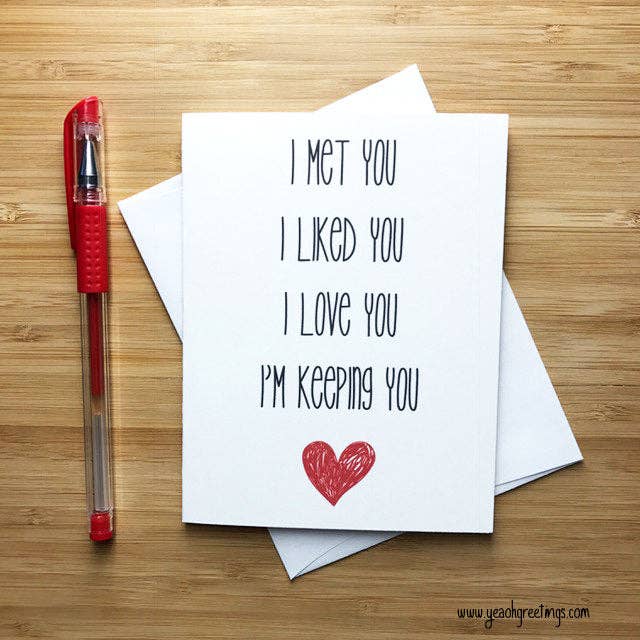 I MET YOU
I LIKED YOU
I LOVE YOU
I'M KEEPING YOU
www.yeaohgreetings.com